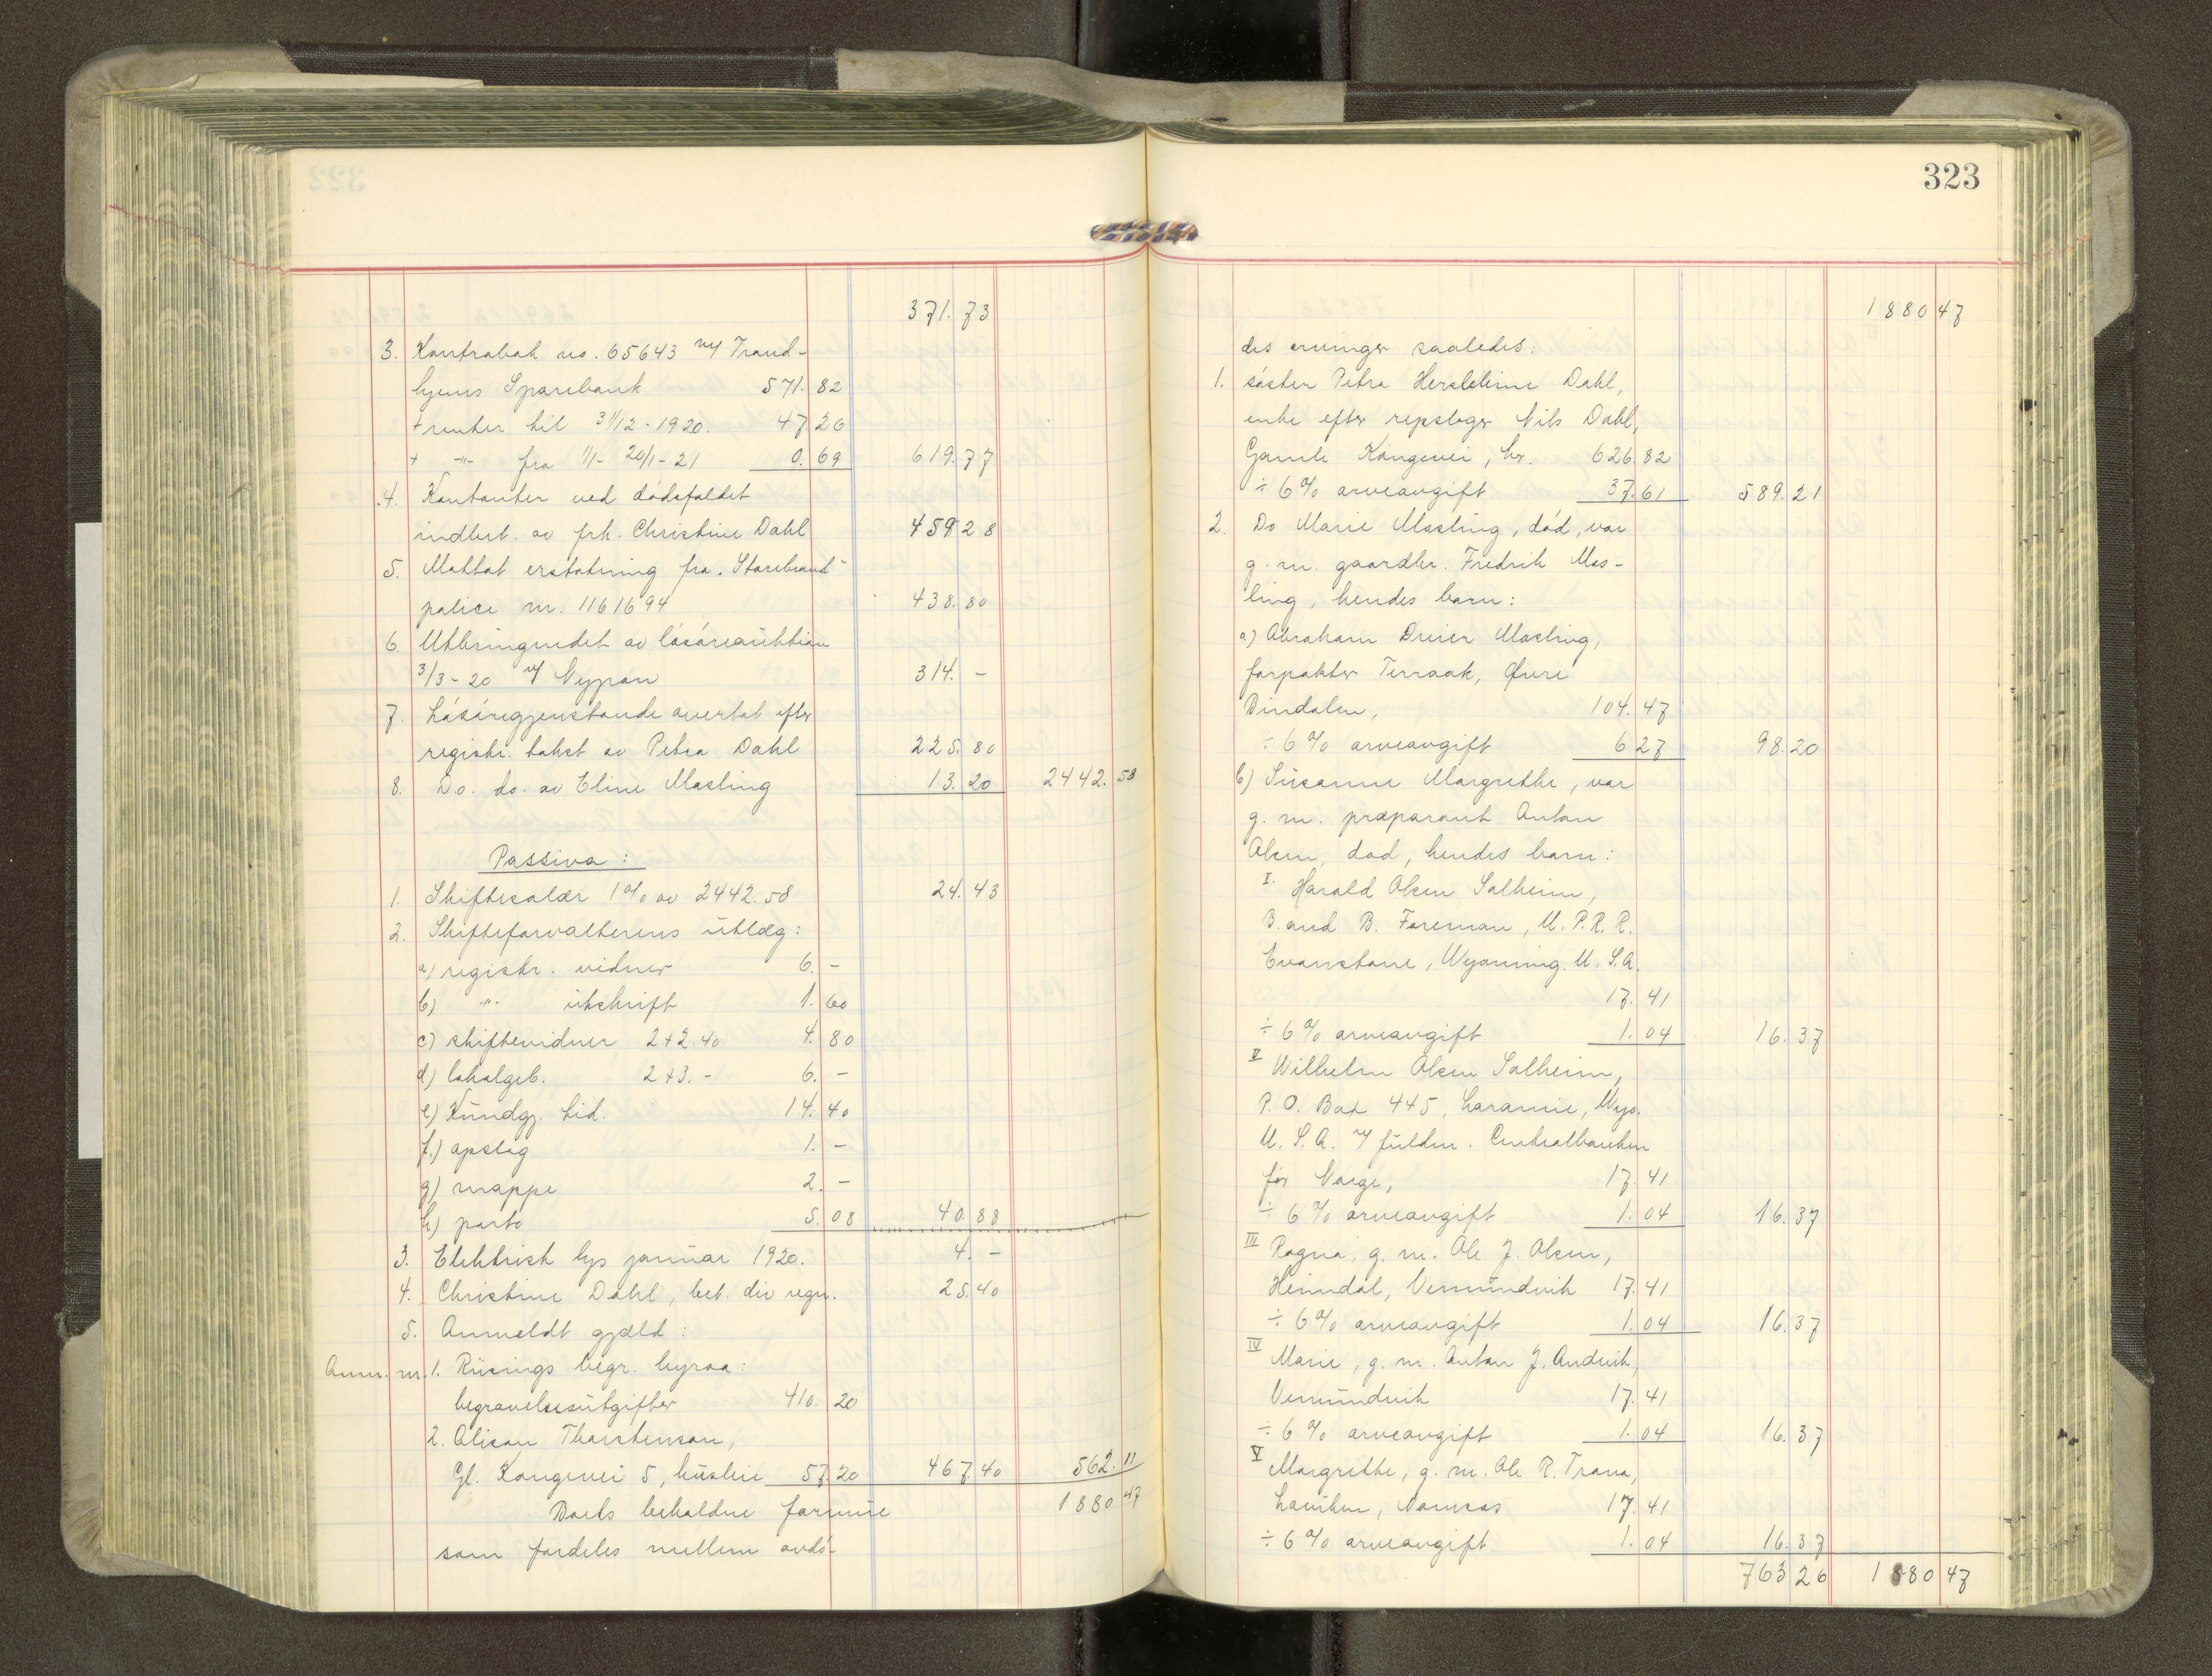 371.73
3. Kontrabok no. 65643 v/ Trond-
hjems Sparebank 571.82
+ renter til 31/12-1920. 47 26
+ -"- fra 1/1-20/1-21 0.69 619.77
4. Kontanter ved dødsfaldet
indbet. av frk. Christine Dahl 459 28
5. Mottat erstatning fra Storebrand
police nr. 1161694 438.80
6. Utbringendet av løsøreauktion
3/3-20 v/ Nypan 314.-
7. Løsøregjenstande overtat efter
registr. takst av Petra Dahl 225.80
8. Do. do. av Eline Masling 13.20 2442.58
Passiva:
1. Skiftesalær 1% av 2442.58 24.43
2. Skifteforvalterens utlæg:
a) registr. vidner 6.-
b) -"- utskrift 1.60
c) skiftevidner 2+2.40 4.80
d) lokalgeb. 2+3.- 6.-
e) Kundgj. tid. 14.40
f) opslag 1.-
g) mappe 2.-
h) porto 5.08 40.88
3. Elektrisk lys januar 1920. 4.-
4. Christine Dahl, bet. div regn. 25.40
5. Anmeldt gjæld:
Anm. nr. 1. Risings begr. byraa:
begravelsesutgifter 410.20
2. Alison Thorstenson,
Gl. Kongevei 5, husleie 57.20 467.40 562.11
Boets beholdne formue 1880 47
som fordeles mellem avdø-
323
1880 47
des arvinger saaledes:
1. søster Petra Hersleline Dahl,
enke efter repslager Nils Dahl,
Gamle Kongevei, her. 626.82
÷ 6% arveavgift 37.61 589.21
2. Do Marie Masling, død, var
g. m. gaardbr. Fredrik Mas-
ling, hendes barn:
a) Abraham Dreier Masling,
forpakter Terraak, Øvre
Bindalen, 104.47
÷ 6% arveavgift 6 27 98.20
b) Susanne Margrethe, var
g. m. præparant Anton
Olsen, død, hendes barn:
I. Harald Olsen Solheim,
B. and B. Foreman, U. P. R. R.
Evanstone, Wyoming. U. S. A.
17.41
÷ 6% arveavgift 1.04 16.37
II Wilhelm Olsen Solheim,
P. O. Box 445, Laramie, Wyo.
U. S. A. v/ fuldm. Centralbanken
for Norge, 17.41
÷ 6% arveavgift 1.04 16.37
III Ragna, g. m. Ole J. Olsen,
Heimdal, Vemundvik 17.41
÷ 6% arveavgift 1.04 16.37
IV Marie, g. m. Anton J. Andvik,
Vemundvik 17.41
÷ 6% arveavgift 1.04 16.37
V Margrethe, g. m. Ole R. Trana,
Namsos 17.41
÷ 6% arveavgift 1.04 16.37
763 26 1880 47